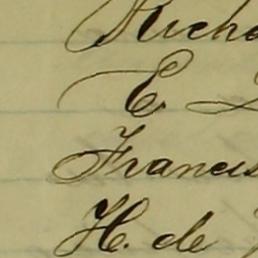 Richa
E
Francis
H. de